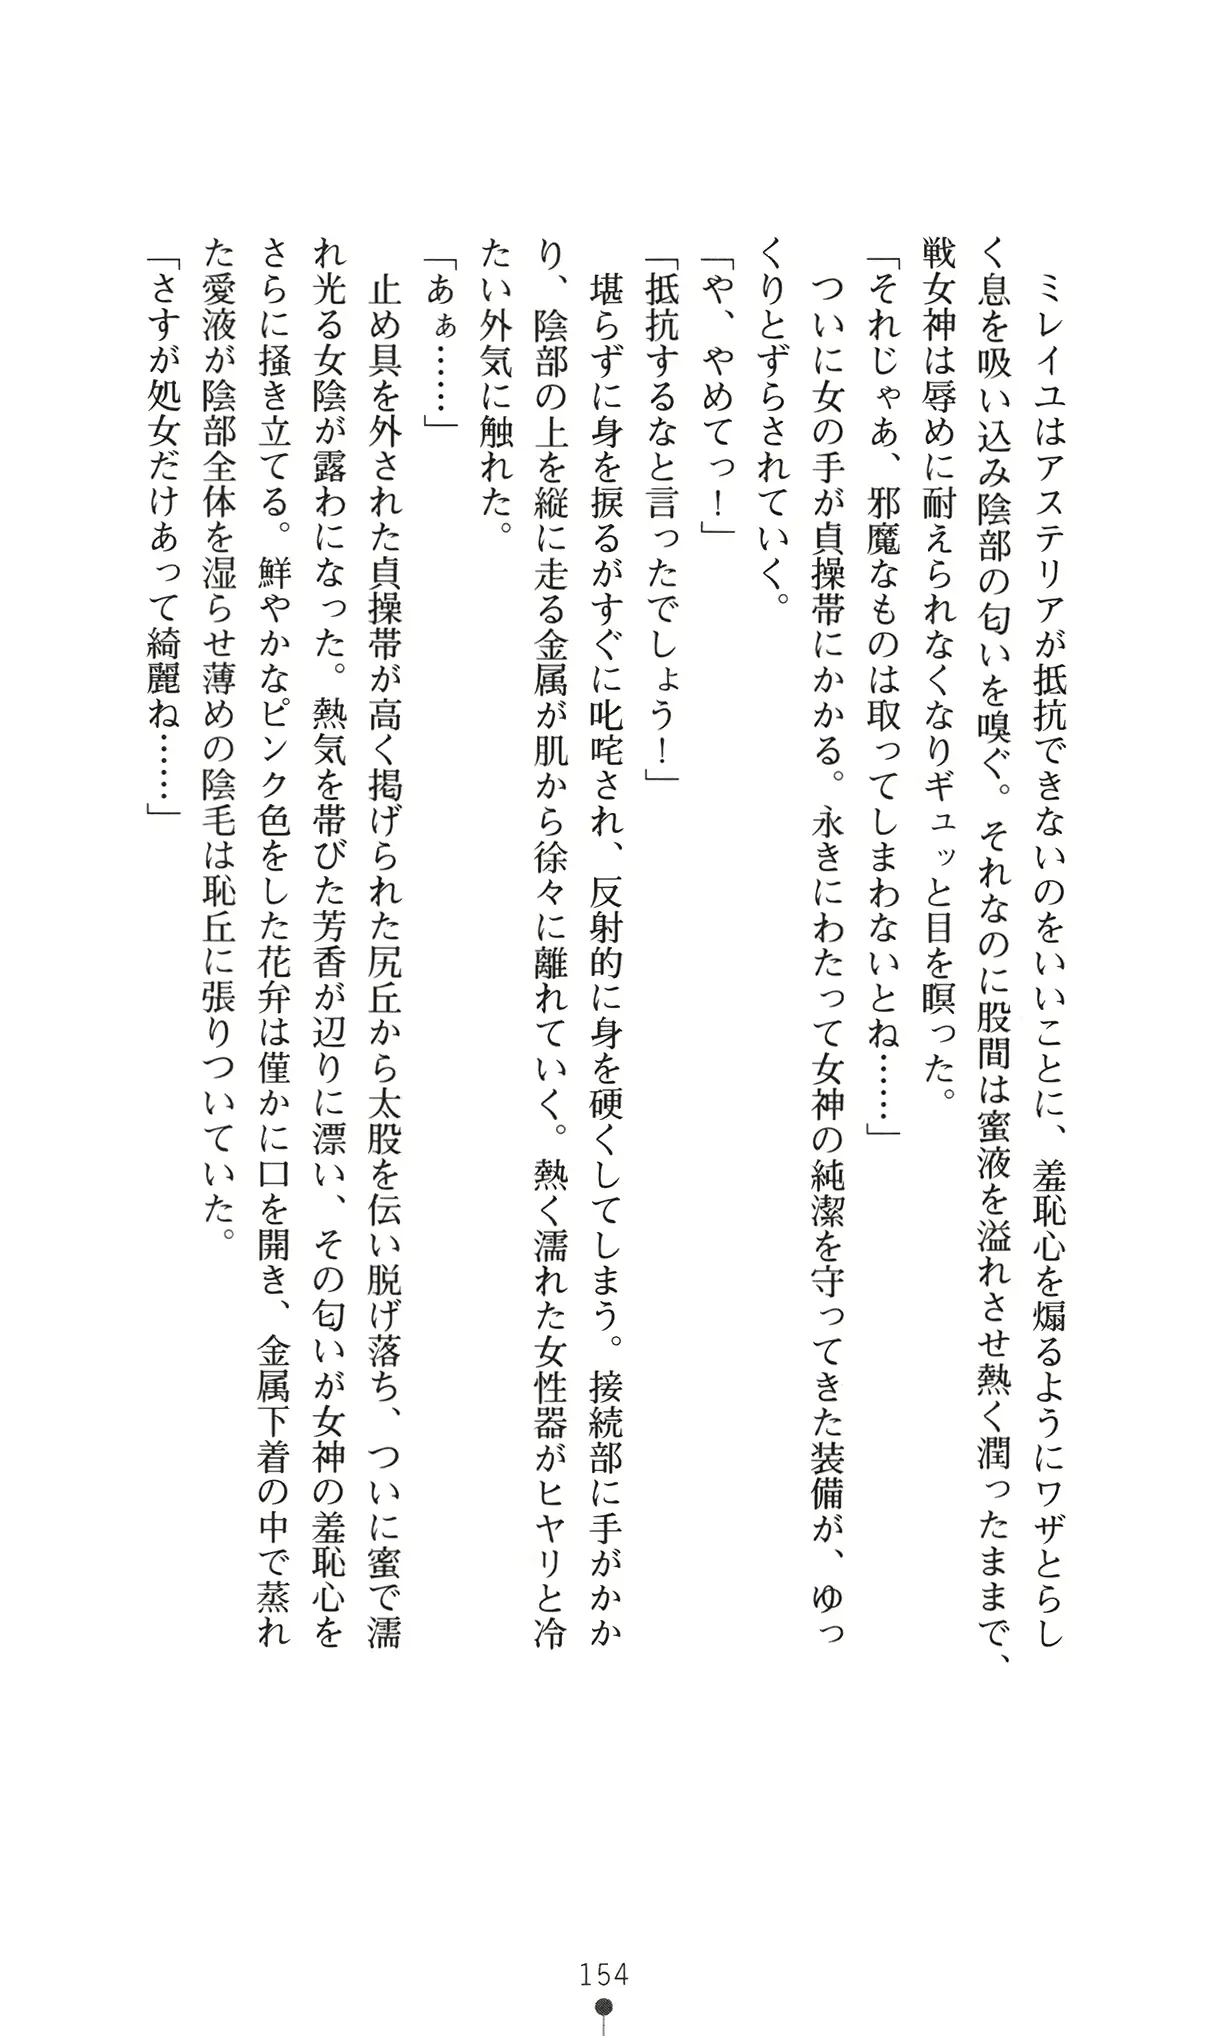 ミレイユはアステリアが抵抗できないのをいいことに、羞恥心を煽るようにワザとらし
く息を吸い込み陰部の匂いを嗅ぐ。それなのに股間は蜜液を溢れさせ熱く潤ったままで、
戦女神は辱めに耐えられなくなりギュッと目を瞑った。
「それじゃあ、邪魔なものは取ってしまわないとね……」
ついに女の手が貞操帯にかかる。永きにわたって女神の純潔を守ってきた装備が、ゆっ
くりとずらされていく。
「や、やめてっ！」
「抵抗するなと言ったでしょう！」
堪らずに身を捩るがすぐに叱咤され、反射的に身を硬くしてしまう。接続部に手がかか
り、陰部の上を縦に走る金属が肌から徐々に離れていく。熱く濡れた女性器がヒヤリと冷
たい外気に触れた。
「あぁ……」
止め具を外された貞操帯が高く掲げられた尻丘から太股を伝い脱げ落ち、ついに蜜で濡
れ光る女陰が露わになった。熱気を帯びた芳香が辺りに漂い、その匂いが女神の羞恥心を
さらに掻き立てる。鮮やかなピンク色をした花弁は僅かに口を開き、金属下着の中で蒸れ
た愛液が陰部全体を湿らせ薄めの陰毛は恥丘に張りついていた。
「さすが処女だけあって綺麗ね……」
154